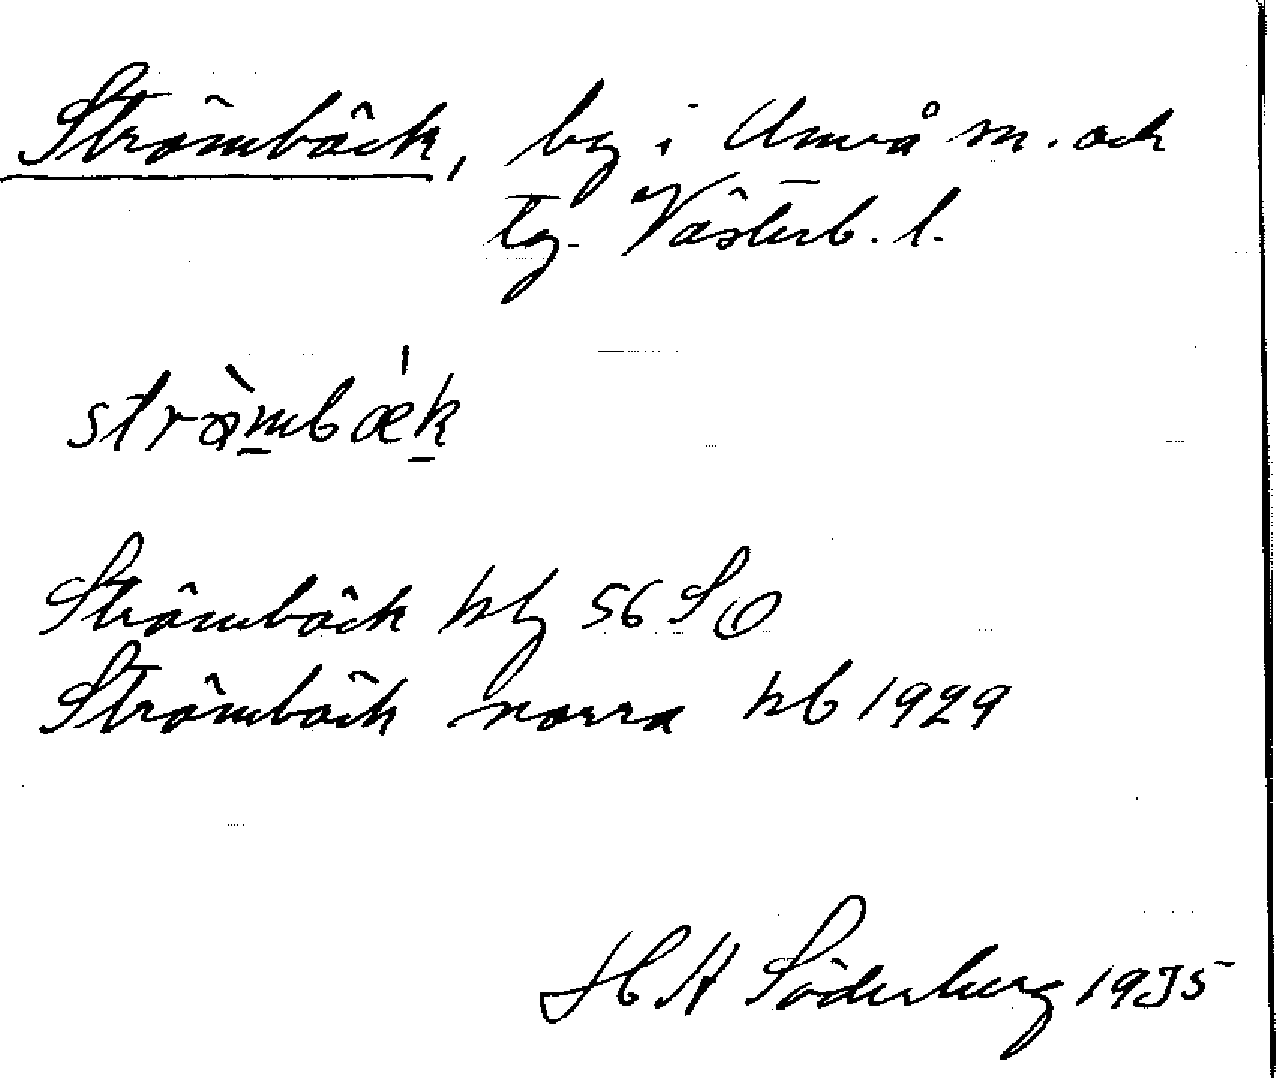 Strömbäck, by i Umeå sn. och
tg. Västerb. l.
strömbæk
Strömbäck kbl 56 SO
Strömbäck norra kb 1929
H A Söderberg 1935